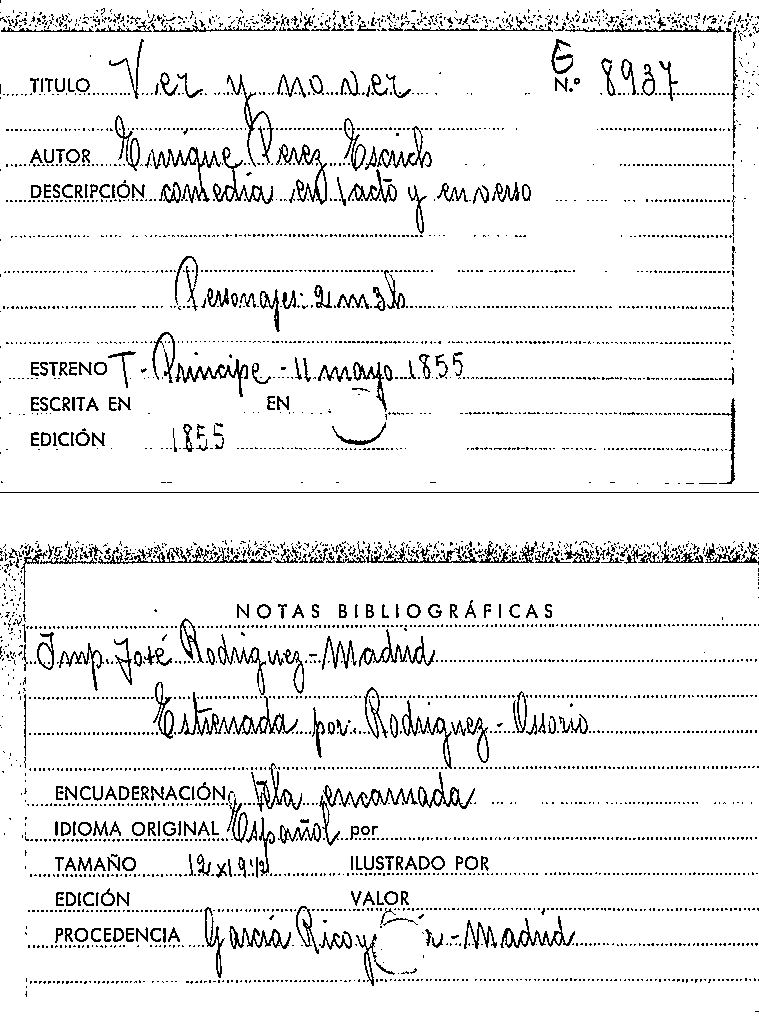 E
TITULO Ver y no ver N.º 8937
AUTOR Enrique Perez Escrich
DESCRIPCIÓN comedia en 1 acto y en verso
Personajes: 2 m 3 h
ESTRENO T. Principe - 11 mayo 1855
ESCRITA EN EN
EDICIÓN 1855
NOTAS BIBLIOGRÁFICAS
Imp. José Rodriguez - Madrid
Estrenada por: Rodriguez - Ossorio
ENCUADERNACIÓN Tela encarnada
IDIOMA ORIGINAL Español por
TAMAÑO 12 x 19 1/2 ILUSTRADO POR
EDICIÓN VALOR
PROCEDENCIA García Rico y - Madrid